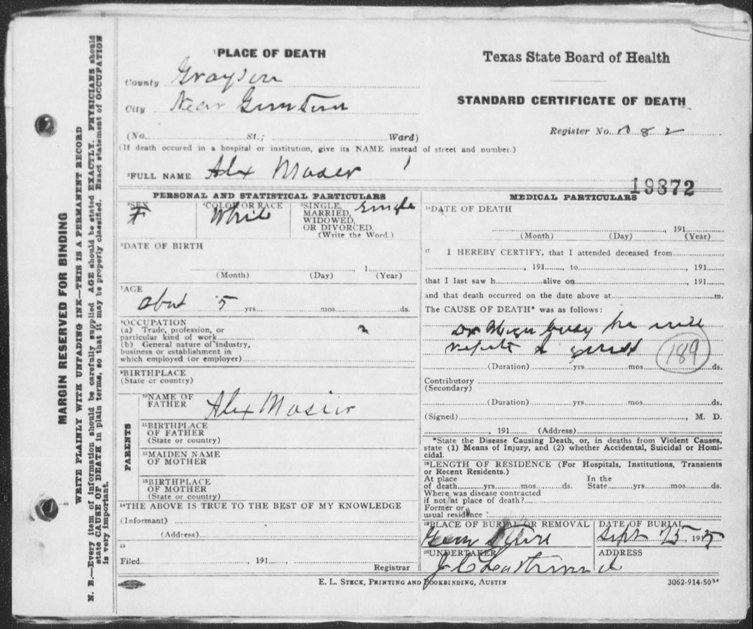 PLACE OF DEATH
County Grayson
City Near
(No. St.; Ward)
(If death occured in a hospital or institution, give its NAME instead of street and number.)
²FULL NAME Alex Mosier
Texas State Board of Health
STANDARD CERTIFICATE OF DEATH
Register No. 82
19372
MARGIN RESERVED FOR BINDING
WRITE PLAINLY WITH UNFADING INK—THIS IS A PERMANENT RECORD
N. B.—Every item of information should be carefully supplied AGE should be stated EXACTLY. PHYSICIANS should
state CAUSE OF DEATH in plain terms, so that it may be properly classified. Exact statement of OCCUPATION
is very important.
PERSONAL AND STATISTICAL PARTICULARS
³SEX F
⁴COLOR OR RACE White
⁵SINGLE, Single
MARRIED,
WIDOWED,
OR DIVORCED.
(Write the Word.)
⁶DATE OF BIRTH
1
(Month) (Day) (Year)
⁷AGE
about 5 yrs. mos. ds.
⁸OCCUPATION
(a) Trade, profession, or
particular kind of work
(b) General nature of industry,
business or establishment in
which employed (or employer)
⁹BIRTHPLACE
(State or country)
PARENTS
¹⁰NAME OF
FATHER Alex Mosier
¹¹BIRTHPLACE
OF FATHER
(State or country)
¹²MAIDEN NAME
OF MOTHER
¹³BIRTHPLACE
OF MOTHER
(State or country)
¹⁴THE ABOVE IS TRUE TO THE BEST OF MY KNOWLEDGE
(Informant)
(Address)
¹⁵
Filed 191 Registrar
MEDICAL PARTICULARS
¹⁶DATE OF DEATH
, 191
(Month) (Day) (Year)
¹⁷ I HEREBY CERTIFY, that I attended deceased from
, 191 , to , 191
that I last saw h alive on , 191
and that death occurred on the date above at m.
The CAUSE OF DEATH* was as follows:
Dr busy he will
189
(Duration) yrs mos ds.
Contributory
(Secondary)
(Duration) yrs. mos. ds.
(Signed) M. D.
, 191 (Address)
*State the Disease Causing Death, or, in deaths from Violent Causes,
state (1) Means of Injury, and (2) whether Accidental, Suicidal or Homi-
cidal.
¹⁸LENGTH OF RESIDENCE (For Hospitals, Institutions, Transients
or Recent Residents.)
At place In the
of death yrs mos ds. State yrs. mos. ds.
Where was disease contracted
if not at place of death?
Former or
usual residence
¹⁹PLACE OF BURIAL OR REMOVAL
DATE OF BURIAL
Sept 25, 1915
²⁰UNDERTAKER
ADDRESS
E. L. STECK, PRINTING AND BOOKBINDING, AUSTIN
3062-914-50M